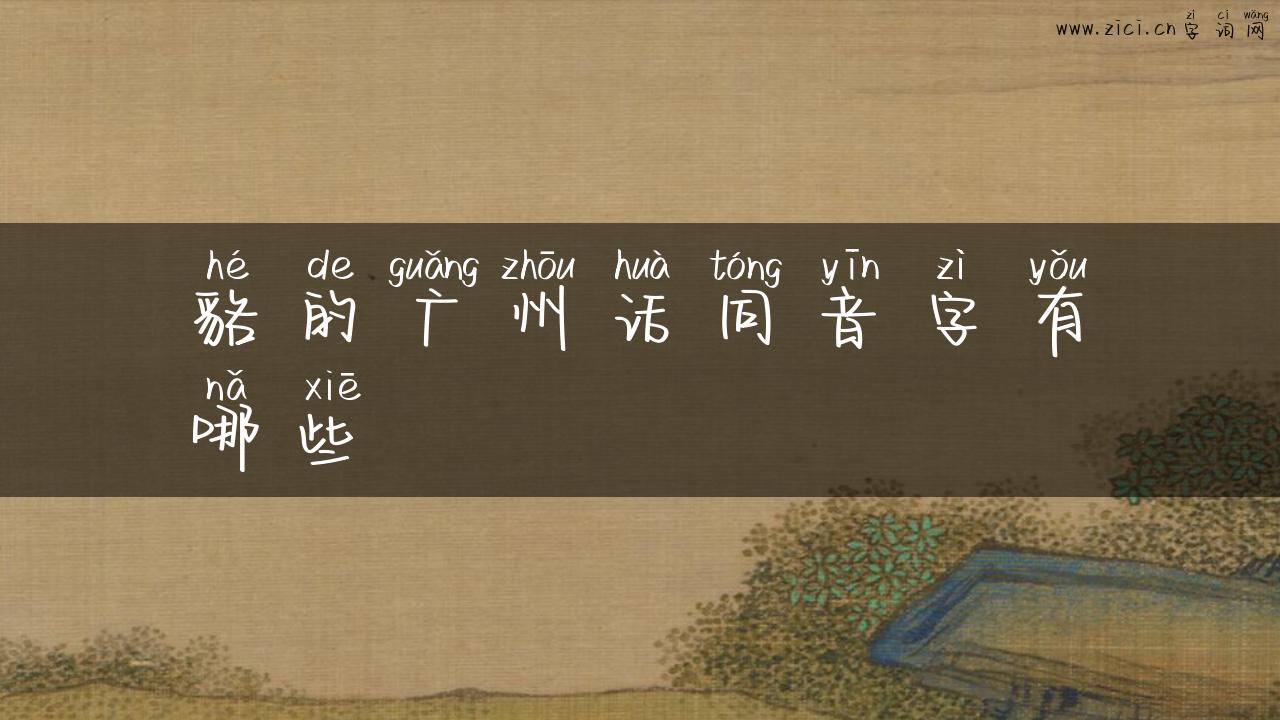 zì cí wǎng
www.zici.cn 字 词 网
hé de guǎng zhōu huà tóng yīn zì yǒu
貉 的 广 州 话 同 音 字 有
nǎ xiē
哪 些